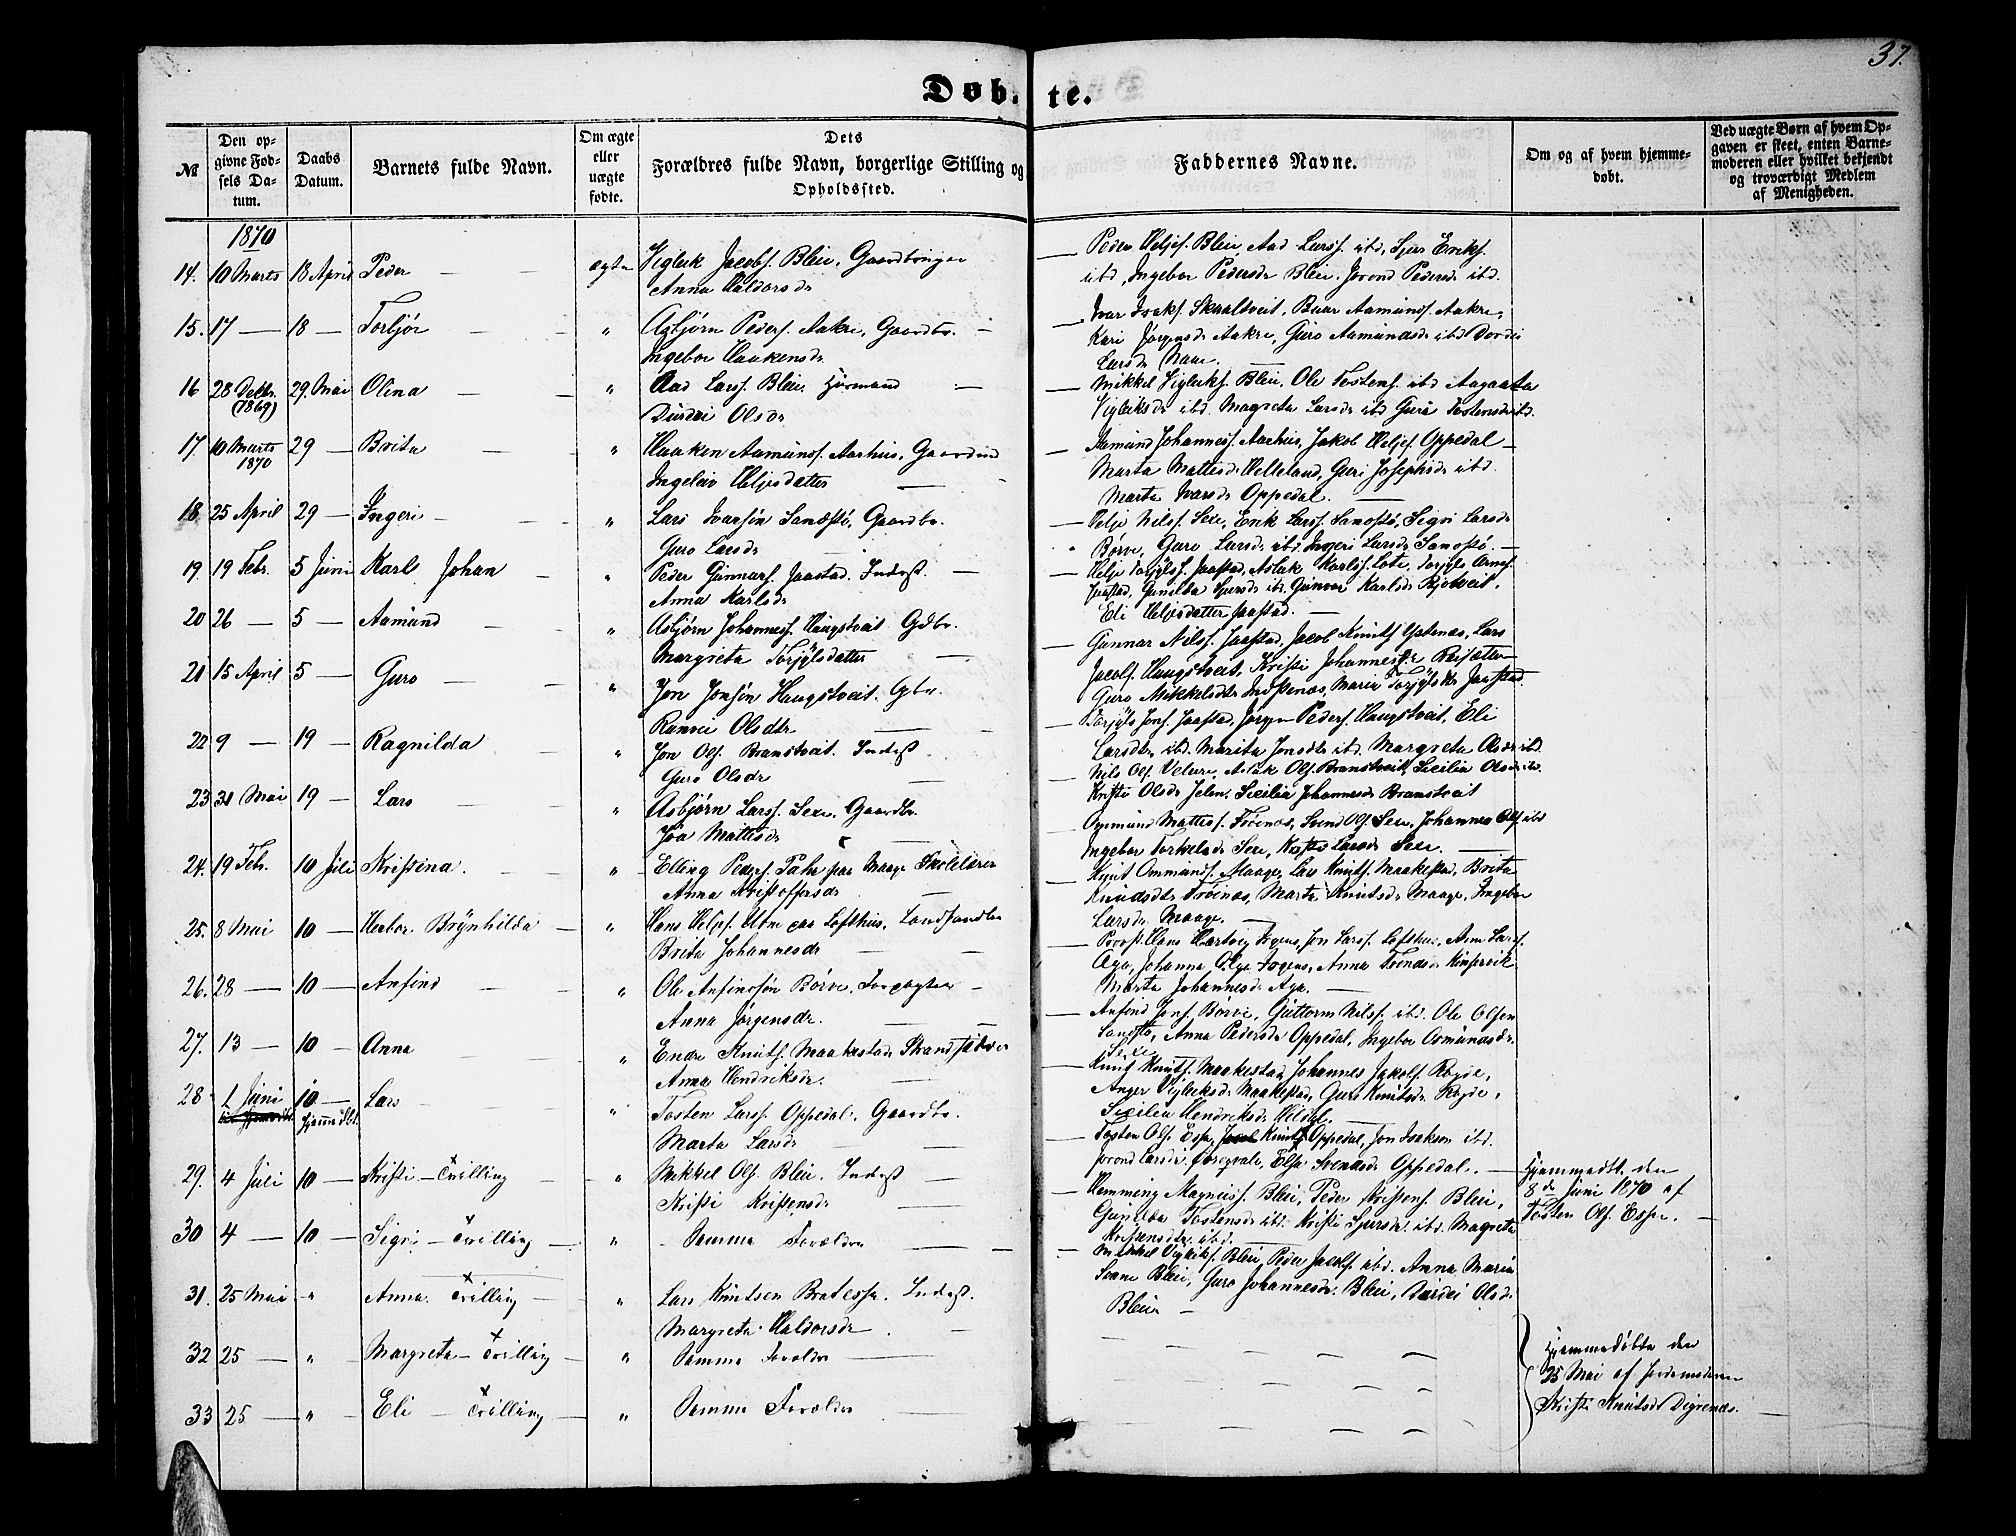 37.
Døbte.
№
Den opgivne Fødsels Datum.
Daabs Datum.
Barnets fulde Navn.
Om ægte eller uægte fødte.
Dets Forældres fulde Navn, borgerlige Stilling og Opholdssted.
Faddernes Navne.
Om og af hvem hjemmedøbt.
Ved uægte Børn af hvem Opgaven er skeet, enten Barnemoderen eller hvilket bekjendt og troværdigt Medlem af Menigheden.
1870
14. 10 Marts 18 April Peder — ægte Viglek Jacobs. Bleie, Gaardbruger
Anna Haldorsdr
Peder Heljes. Bleie, Aad Larss. ibd, Sjur Eriks.
ibd, Ingebor Pedersdr Bleie, Jorond Pedersdr ibd.
15. 17 — 18 — Torbjør — " Asbjørn Peders. Aakre, Gaardbr.
Ingebor Haakensdr
Ivar Isaks. Skraltveit, Aamunds. Aakre,
Kari Jørgensdr Aakre, Guro Aamundsdr ibd Dordei
Larsdr
16 28 Decbr. (1869) 29. Mai Olina — " Aad Larss. Bleie. Huusmand
Durdei Olsdr
Mikkel Vigleiks. Bleie, Ole Tostens. ibd Aagaata
Vigleiksdr ibd. Magreta Larsdr ibd Guro Tostensdr ibd.
17. 10 Marts 1870 29 — Brita — " Haaken Aamunds. Aarhus, Gaardmd
Ingeleiv Heljesdatter
Aamund Johanness. Aarhus, Jakob Heljes. Oppedal
Marta Mattisdr Helleland, Guri Josephsdr ibd.
Marta Ivarsdr Oppedal.
18. 25 April 29 — Ingeri — " Lars Ivarsøn Sandstø, Gaardbr.
Guro Larsdr
Helje Nilss. Sexe, Erik Larss. Sandstø, Sigri Larsdr
Børve, Guro Larsdr ibd. Ingeri Larsdr Sandstø.
19. 19 Febr. 5 Juni Karl Johan — " Peder Gunnars. Jaastad. Inderst.
Anna Karlsdr
Helje Torjyls. Jaastad, Aslak Karls. Lote, Torjyls Arnes.
Jaastad, Gunilda Sjursdr ibd. Gunvor Karlsdr Rjotveit,
Eli Heljesdatter Jaastad.
20 26 — 5 — Aamund — " Asbjørn Johanness. Haugstveit Gdbr.
Margreta Torjylsdatter
Gunnar Nilss. Jaastad, Jacob Knuts. Ystenæs, Lars
Jacobs. Haugstveit, Kristi Johannesdr
Guro Mikkelsdtr Indstenæs, Maria Torjylsdr Jaastad.
21 15 April 5 — Guro — " Jon Jonsøn Haugstveit. Gbr.
Ranvei Olsdtr
Torjyls Jons. Jaastad, Jørgen Peders. Haugstveit, Eli
Larsdtr ibd. Marita Jonsdtr ibd Margreta Olsdr ibd.
22 9 — 19 — Ragnilda — " Jon Ols. Branstveit. Inderst.
Guro Olsdr
Nils Ols. Velure, Aslak Ols. Branstveit, Sicilia Olsdr ibd.
Kristi Olsdr Jelen, Sicilia Johannesdr Branstveit
23 31 Mai 19 — Lars — " Asbjørn Larss. Sexe. Gaardbr.
Mattisdr
Ommund Mattiss. Trøenæs, Svend Ols. Sexe, Johannes Ols. ibd
Ingebor Torkelsdr Sexe, Kristi Larsdr Sexe.
24. 19 Febr. 10 Juli Kristina. — " Elling Peders. Pahr paa Maage Skolelærer
Anna Kristoffersdr
Knut Ommunds. Maage, Lars Knuts. Maakestad, Brita
Knudsdtr Trøenæs, Marta Knutsdr Maage, Ingebor
Larsdr Maage.
25. 8 Mai 10 — Herbor Brynhilda — " Hans Heljes. Utne paa Lofthus, Landhandler
Brita Johannesdr
Provst Hans Hartvig Jon Larss. Lofthus, Arne Larss.
Aga, Johanna Olga Anna Kinservik
Marta Johannesdr Aga.
26. 28 — 10 — Anfind — " Ole Anfinssøn Børve. Forpagter
Anna Jørgensdr.
Anfind Jons. Børve, Guttorm Nilss. ibd. Ole Olsen
Sandstø, Anna Pedersdr Oppedal, Ingebor Osmundsdr.
Sexe
27. 13 — 10 — Anna — " Endre Knuts. Maakestad Strandsidder
Anna Hendriksdr.
Knut Knuts. Maakestad, Johannes Jakobs. Røgde,
Anger Vigleksdr Maakestad, Guro Knutsdr Røgde,
Sicilia Hendriksdr Hildal.
28 1 Juni 10 — hjemmedbt. Lars — " Tosten Larss. Oppedal, Gaardbr.
Marta Larsdr
Tosten Ols. Espe, Knuts. Oppedal, Jon Isaksen ibd.
Jorond Larsdr Elsa Svendsdr Oppedal.
Hjemmedbt. den
8de Juni 1870 af
Tosten Ols. Espe.
29. 4 Juli 10 — Kristi — Tvilling — " Mikkel Ols. Bleie. Inderst
Kristi Kristensdr
Hemming Magness. Bleie, Peder Kristens. Bleie,
Gunilda Tostensdr ibd. Kristi Sjursdr. ibd. Magreta
Kristensdtr. ibd.
30 4 — 10 — Sigri — Tvilling — " Samme Forældre
Mikkel Vigleiks. Bleie Peder Jacobs. ibd. Anna Maria
Svane Bleie, Guro Johannesdr. Bleie, Durdei Olsdr
Bleie
31. 25 Mai " Anna. Tvilling — " Lars Knutsen Bratespe. Inderst.
Margreta Haldorsdr
32 25 — " Margreta — Tvilling — " Samme Forældre
33 25 — " Eli — Tvilling — " Samme Forældre
Hjemmedøbte den
25 Mai af Jordemoderen
Kristi Knutsdr Digrenæs.